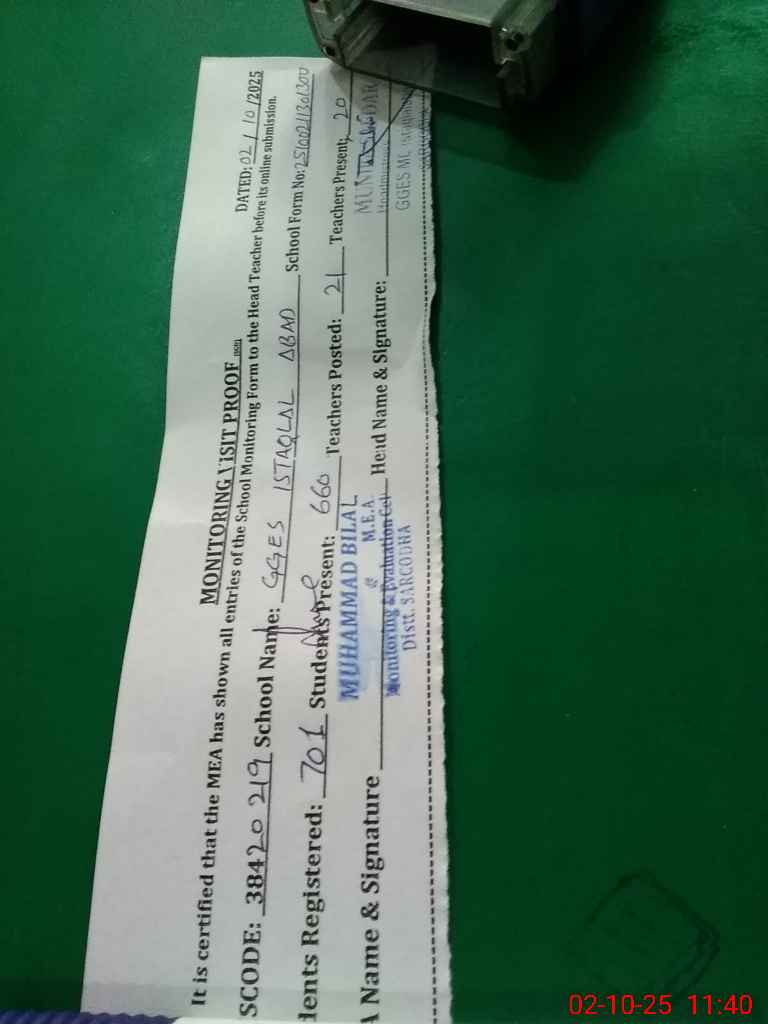 MONITORING VISIT PROOF
DATED: 02/10/2025
It is certified that the MEA has shown all entries of the School Monitoring Form to the Head Teacher before its online submission.
SCODE: 38420219 School Name: GGES ISTAQLAL ABAD School Form No:
dents Registered: 701 Students Present: 660 Teachers Posted: 21 Teachers Present: 20
A Name & Signature Head Name & Signature:
MUHAMMAD BILAL
M.E.A.
Monitoring & Evaluation Cel
Distt. SARGODHA
GGES
02-10-25 11:40